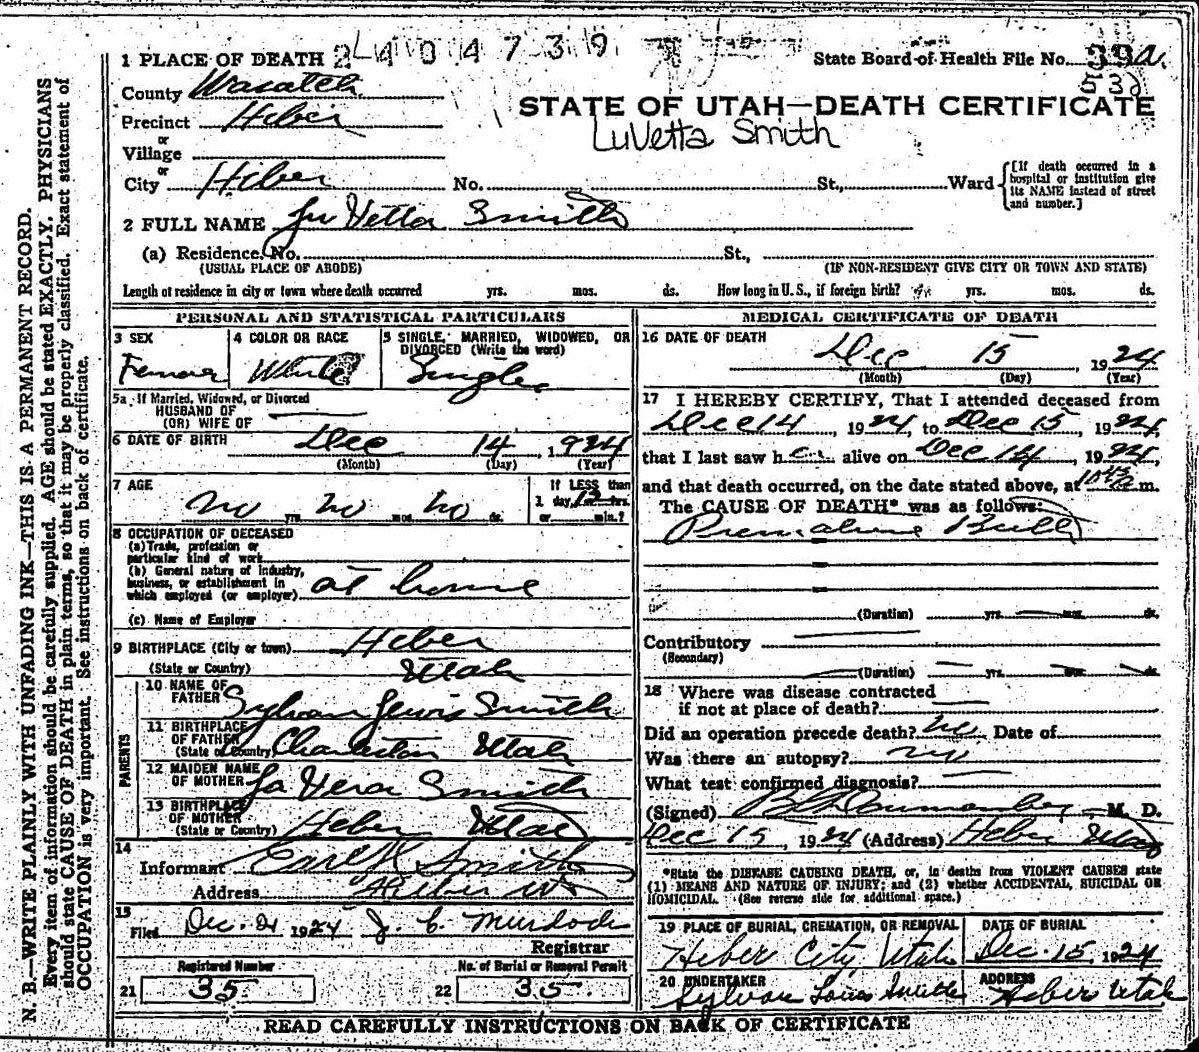 1 PLACE OF DEATH 2404739
State Board of Health File No.
County Wasatch
532
STATE OF UTAH—DEATH CERTIFICATE
Precinct Heber
LuVetta Smith
or
Village
or
City Heber No. St., Ward
[If death occurred in a hospital or institution give its NAME instead of street and number.]
2 FULL NAME Lu Vetta Smith
(a) Residence. No. St.,
(USUAL PLACE OF ABODE) (IF NON-RESIDENT GIVE CITY OR TOWN AND STATE)
Length of residence in city or town where death occurred yrs. mos. ds. How long in U. S., if foreign birth? yrs. mos. ds.
PERSONAL AND STATISTICAL PARTICULARS
3 SEX 4 COLOR OR RACE 5 SINGLE, MARRIED, WIDOWED, OR
DIVORCED (Write the word)
White Single
5a If Married, Widowed, or Divorced
HUSBAND OF
(OR) WIFE OF
6 DATE OF BIRTH Dec 14, 1924
(Month) (Day) (Year)
7 AGE If LESS than
no yrs. no mos. no ds. 1 day, 12 hrs.
or min.?
8 OCCUPATION OF DECEASED
(a) Trade, profession or
particular kind of work
(b) General nature of Industry,
business, or establishment in
which employed (or employer) at home
(c) Name of Employer
9 BIRTHPLACE (City or town) Heber
(State or Country) Utah
PARENTS
10 NAME OF
FATHER Sylvan Lewis Smith
11 BIRTHPLACE
OF FATHER
(State or Country) Charleston Utah
12 MAIDEN NAME
OF MOTHER La Vera Smith
13 BIRTHPLACE
OF MOTHER
(State or Country) Heber Utah
14
Informant Earl Smith
Address Heber
15
Filed Dec. 21 1924 J. C. Murdock
Registrar
Registered Number No. of Burial or Removal Permit
21 35 22 35.
MEDICAL CERTIFICATE OF DEATH
16 DATE OF DEATH
Dec 15, 1924
(Month) (Day) (Year)
17 I HEREBY CERTIFY, That I attended deceased from
Dec 14, 1924, to Dec 15, 1924,
that I last saw her alive on Dec 14, 1924,
and that death occurred, on the date stated above, at m.
The CAUSE OF DEATH* was as follows:
Premature Birth
(Duration) yrs. mos. ds.
Contributory
(Secondary)
(Duration) yrs. mos. ds.
18 Where was disease contracted
if not at place of death?
Did an operation precede death? no Date of
Was there an autopsy? no
What test confirmed diagnosis?
(Signed) M. D.
Dec 15, 1924 (Address) Heber Utah
*State the DISEASE CAUSING DEATH, or, in deaths from VIOLENT CAUSES state
(1) MEANS AND NATURE OF INJURY; and (2) whether ACCIDENTAL, SUICIDAL OR
HOMICIDAL. (See reverse side for additional space.)
19 PLACE OF BURIAL, CREMATION, OR REMOVAL DATE OF BURIAL
Heber City, Utah Dec. 15, 1924
20 UNDERTAKER ADDRESS
Sylvan Smith Heber Utah
READ CAREFULLY INSTRUCTIONS ON BACK OF CERTIFICATE
N. B.—WRITE PLAINLY WITH UNFADING INK—THIS IS A PERMANENT RECORD.
Every item of information should be carefully supplied. AGE should be stated EXACTLY. PHYSICIANS
should state CAUSE OF DEATH in plain terms, so that it may be properly classified. Exact statement of
OCCUPATION is very important. See instructions on back of certificate.